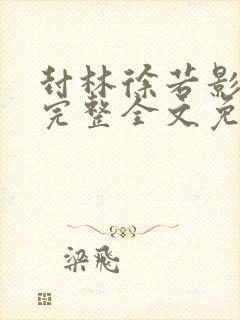 封林徐若影
完整全文免
梁飛